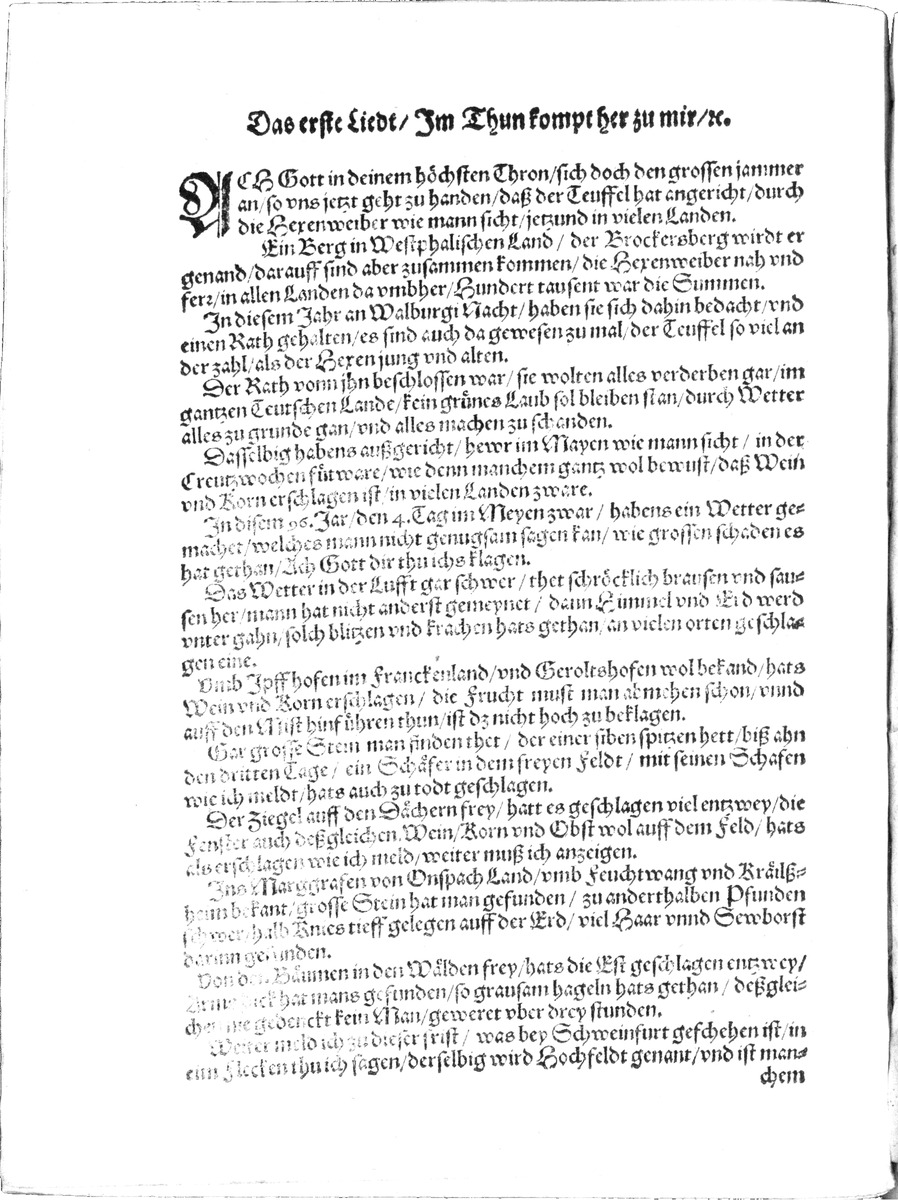 Das erste Liedt/ Im Thun kompt her zu mir/ꝛc.
ACH Gott in deinem höchsten Thron/sich doch den grossen jammer
an/so vns jetzt geht zu handen/daß der Teuffel hat angericht/durch
die Hexenweiber wie mann sicht/jetzund in vielen Landen.
Ein Berg in Westphalischen Land/ der Brockersberg wirdt er
genand/darauff sind aber zusammen kommen/ die Hexenweiber nah vnd
ferꝛ/in allen Landen da vmbher/Hundert tausent war die Summen.
In diesem Jahr an Walburgi Nacht/ haben sie sich dahin bedacht/vnd
einen Rath gehalten/es sind auch da gewesen zu mal/der Teuffel so viel an
der zahl/als der Hexen jung vnd alten.
Der Rath vonn jhn beschlossen war/ sie wolten alles verderben gar/im
gantzen Teutschen Lande/kein grünes Laub sol bleiben stan/durch Wetter
alles zu grunde gan/vnd alles machen zu schanden.
Dasselbig habens außgericht/hewr im Mayen wie mann sicht/ in der
Creutzwochen fütware/wie denn manchem gantz wol bewust/daß Wein
vnd Korn erschlagen ist/in vielen Landen zware.
In disem 96. Jar/den 4. Tag im Meyen zwar/ habens ein Wetter ge-
machet/welches mann nicht genugsam sagen kan/ wie grossen schaden es
hat gethan/Ach Gott dir thu ichs klagen.
Das Wetter in der Lufft gar schwer/ thet schröcklich brausen vnd sau-
sen her/mann hat nicht anderst gemeynet/ dann Himmel vnd Erd werd
vnter gahn/solch blitzen vnd krachen hats gethan/an vielen orten geschla-
gen eine.
Vmb Jpffhofen im Franckenland/vnd Geroltshofen wol bekand/hats
Wein vnd Korn erschlagen/ die Frucht must man abmehen schon/vnnd
auff den Mist hinführen thun/ist dz nicht hoch zu beklagen.
Gar grosse Stein man finden thet/ der einer siben spitzen hett/biß ahn
den dritten Tage/ ein Schäfer in dem freyen Feldt/ mit seinen Schafen
wie ich meldt/hats auch zu todt geschlagen.
Der Ziegel auff den Dächern frey/ hatt es geschlagen viel entzwey/die
Fenster auch deßgleichen, Wein/Korn vnd Obst wol auff dem Feld/ hats
als erschlagen wie ich meld/weiter muß ich anzeigen.
Ins Marggrafen von Onspach Land/vmb Feuchtwang vnd Kräilß-
heim bekant/grosse Stein hat man gefunden/ zu anderthalben Pfunden
schwer/halb Knies tieff gelegen auff der Erd/ viel Haar vnnd Sewborst
darinn gefunden.
Von den Bäumen in den Wälden frey/hats die Est geschlagen entzwey/
Arms dick hat mans gefunden/so grausam hageln hats gethan/ deßglei-
chen nie gedenckt kein Man/geweret vber drey stunden.
Weiter meld ich zu dieser frist/ was bey Schweinfurt geschehen ist/in
eim Flecken thu ich sagen/derselbig wird Hochfeldt genant/vnd ist man-
chem